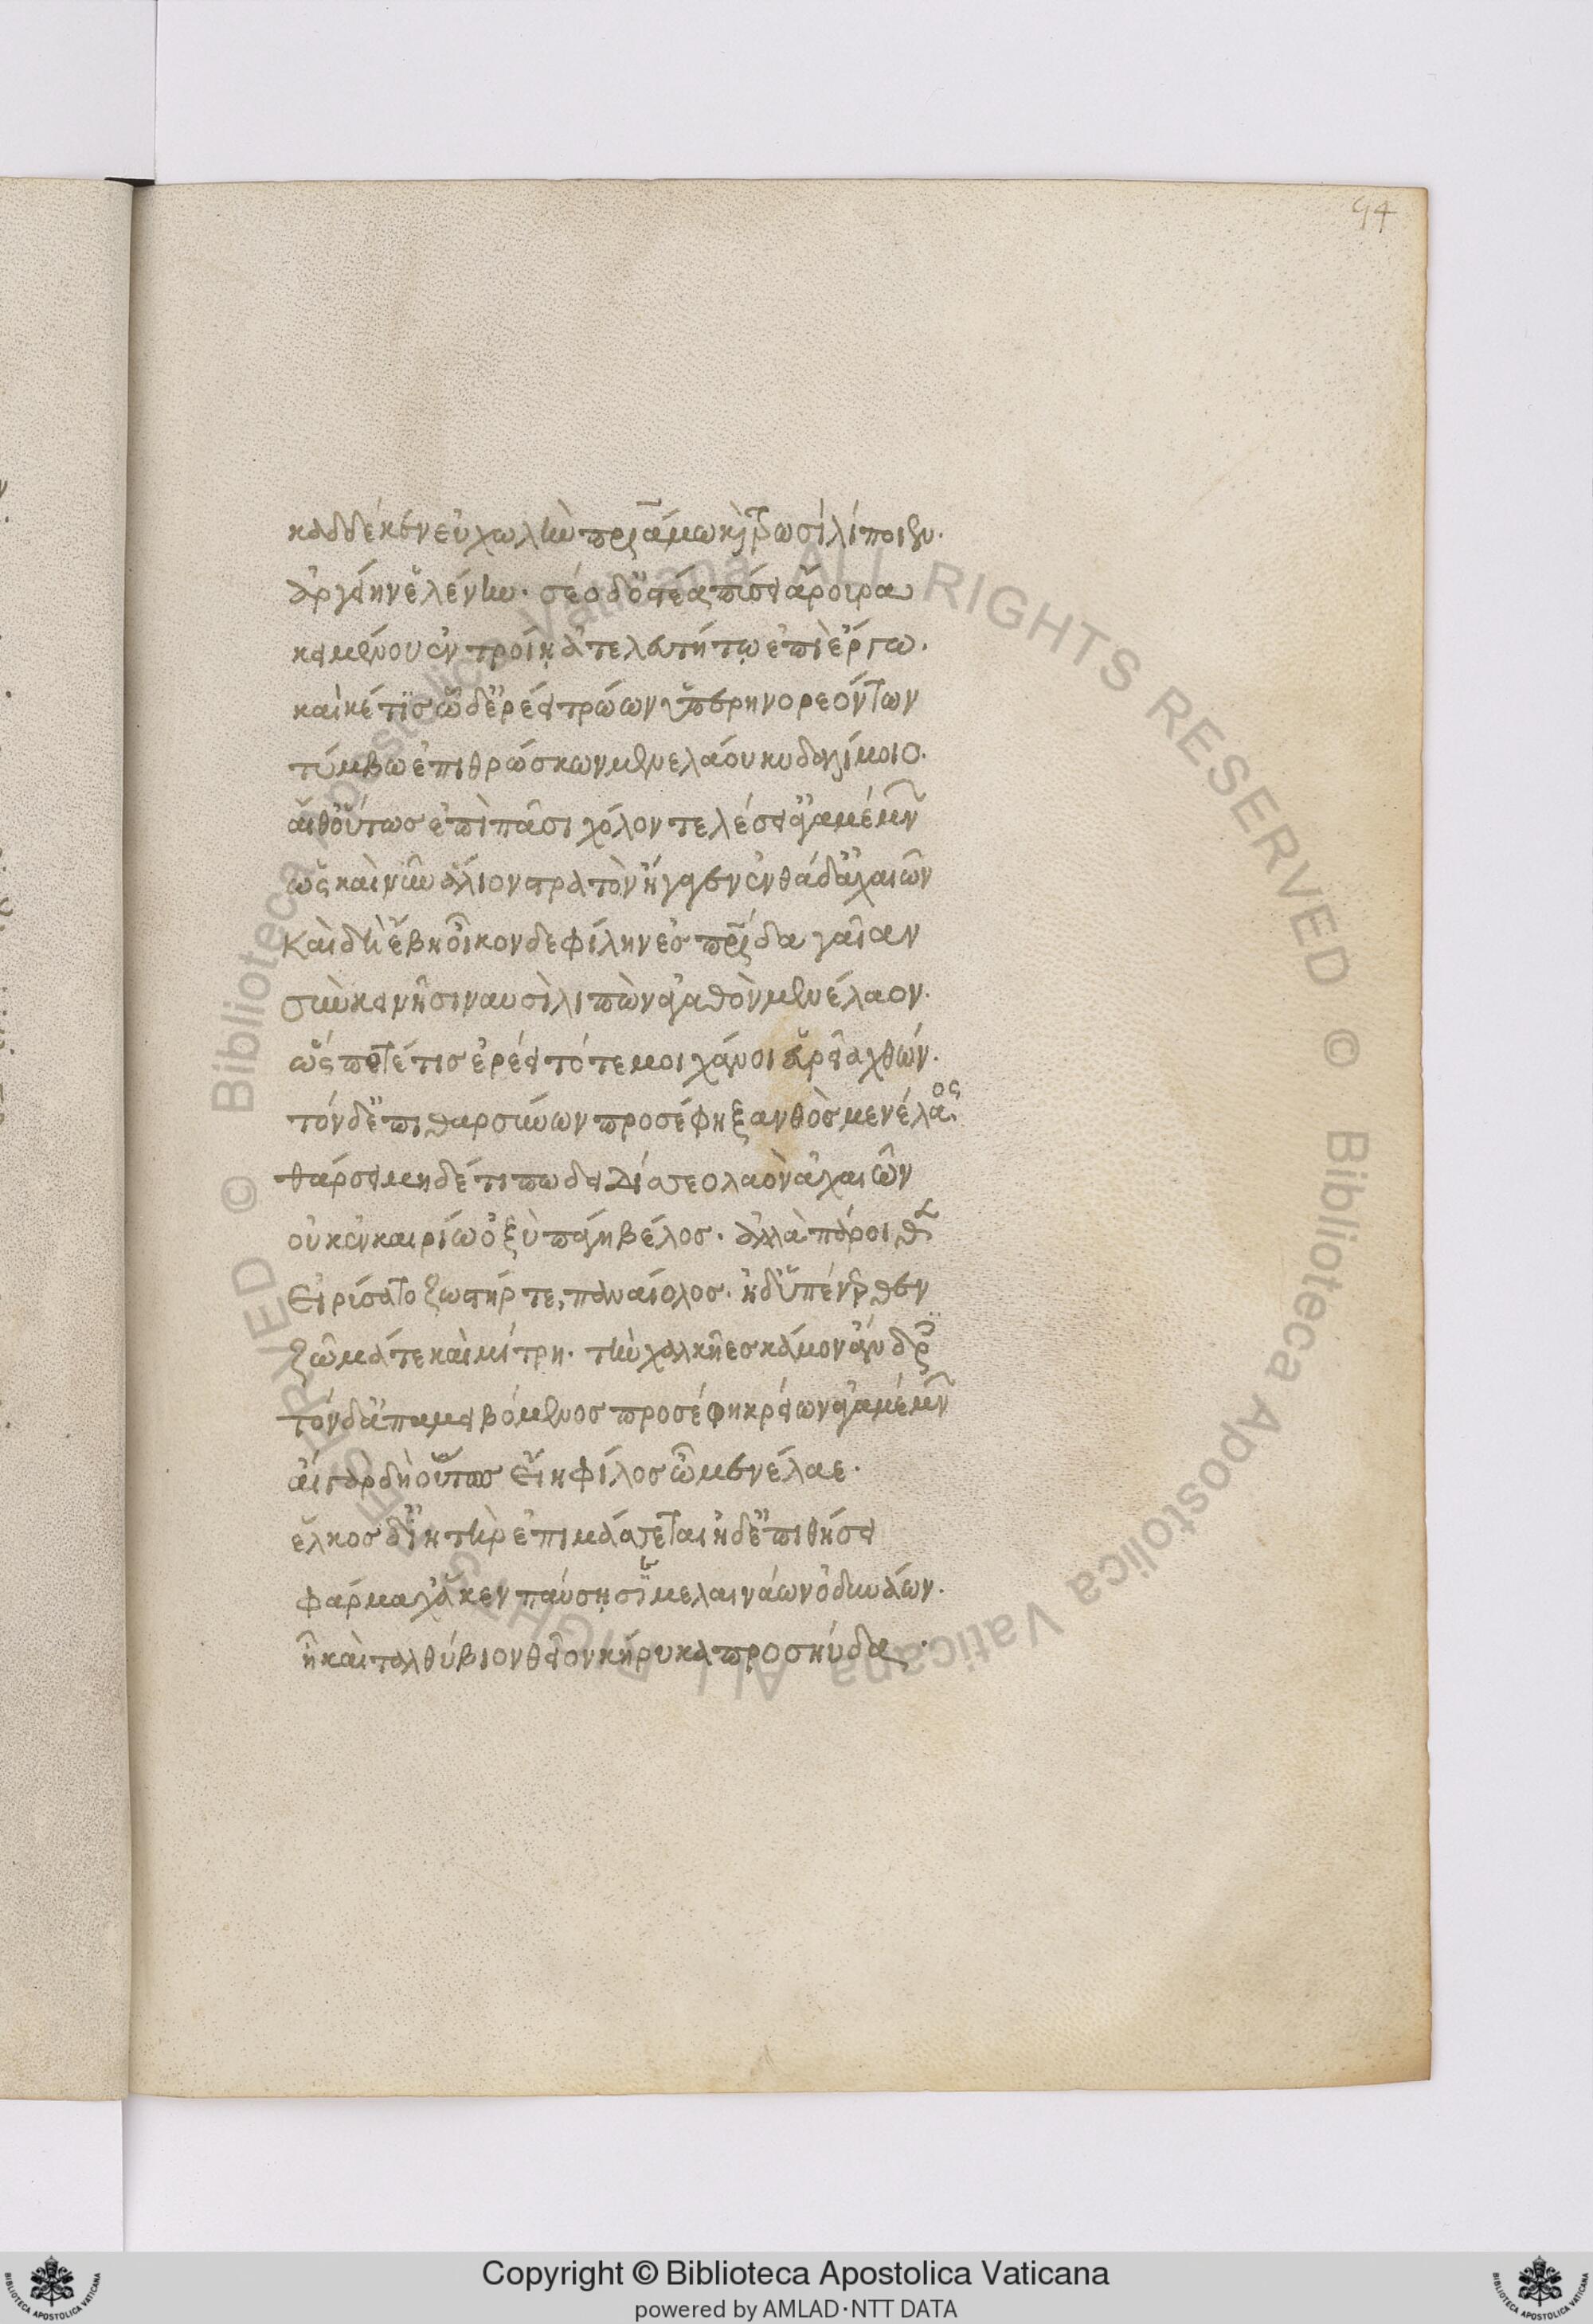 94
καδδέκεν εὐχωλὴν πριάμω κὶ τρωσὶ λίποιεν.
ἀργείην ἑλένην. σέο δ' ὀστέα πύσει ἄρουρα
κειμένου ἐν τροίῃ ἀτελευτήτῳ ἐπὶ ἔργω.
καί κέ τις ὧδ' ἐρέει τρώων ὑπερηνορεόντων
τύμβω ἐπιθρώσκων μενελάου κυδαλίμοιο.
αἴθ' οὕτως ἐπὶ πᾶσι χόλον τελέσει' ἀγαμέμνων
ὡς καὶ νῦν ἅλιον στρατὸν ἤγαγεν ἐνθάδ' ἀχαιῶν
Καὶ δὴ ἔβη οἶκον δε φίλην ἐς πατρίδα γαῖαν
σὺν κεινῆσι ναυσὶ λιπὼν ἀγαθὸν μενέλαον.
ὥς ποτέ τις ἐρέει τότε μοι χάνοι εὐρεῖα χθών.
τὸν δ' ἐπιθαρσύνων προσέφη ξανθὸς μενέλαος.
θάρσει μηδέ τί πω δειδίσσεο λαὸν ἀχαιῶν
οὐκ ἐν καιρίω ὀξὺ πάγη βέλος. ἀλλὰ πάροιθεν
Εἰρύσατο ζωστήρ τε, παναίολος. ἠδ' ὑπένερθεν
ζῶμά τε καὶ μίτρη. τὴν χαλκῆες κάμον ἄνδρες
τὸν δ' ἀπαμειβόμενος προσέφη κρείων ἀγαμέμνων
αἲ γὰρ δὴ οὕτως εἴη φίλος ὦ μενέλαε.
ἕλκος δ' ἰητὴρ ἐπιμάσσεται ἠδ' ἐπιθήσει
φάρμαχ' ἅ κεν παύσῃσι μελαινάων ὀδυνάων.
ἦ καὶ ταλθύβιον θεῖον κήρυκα προσηύδα.
© Biblioteca Apostolica Vaticana ALL RIGHTS RESERVED © Biblioteca Apostolica Vaticana ALL RIGHTS RESERVED
Copyright © Biblioteca Apostolica Vaticana
powered by AMLAD·NTT DATA